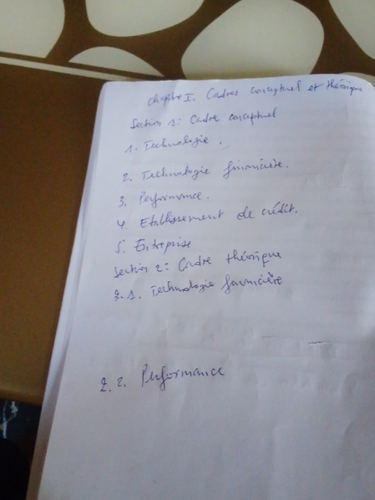 Chapitre I. Cadres conceptuel et théorique
Section 1: Cadre conceptuel
1. Technologie.
2. Technologie financière.
3. Performance.
4. Etablissement de crédit.
5. Entreprise
Section 2: Cadre théorique
2.1. Technologie financière
2.2. Performance